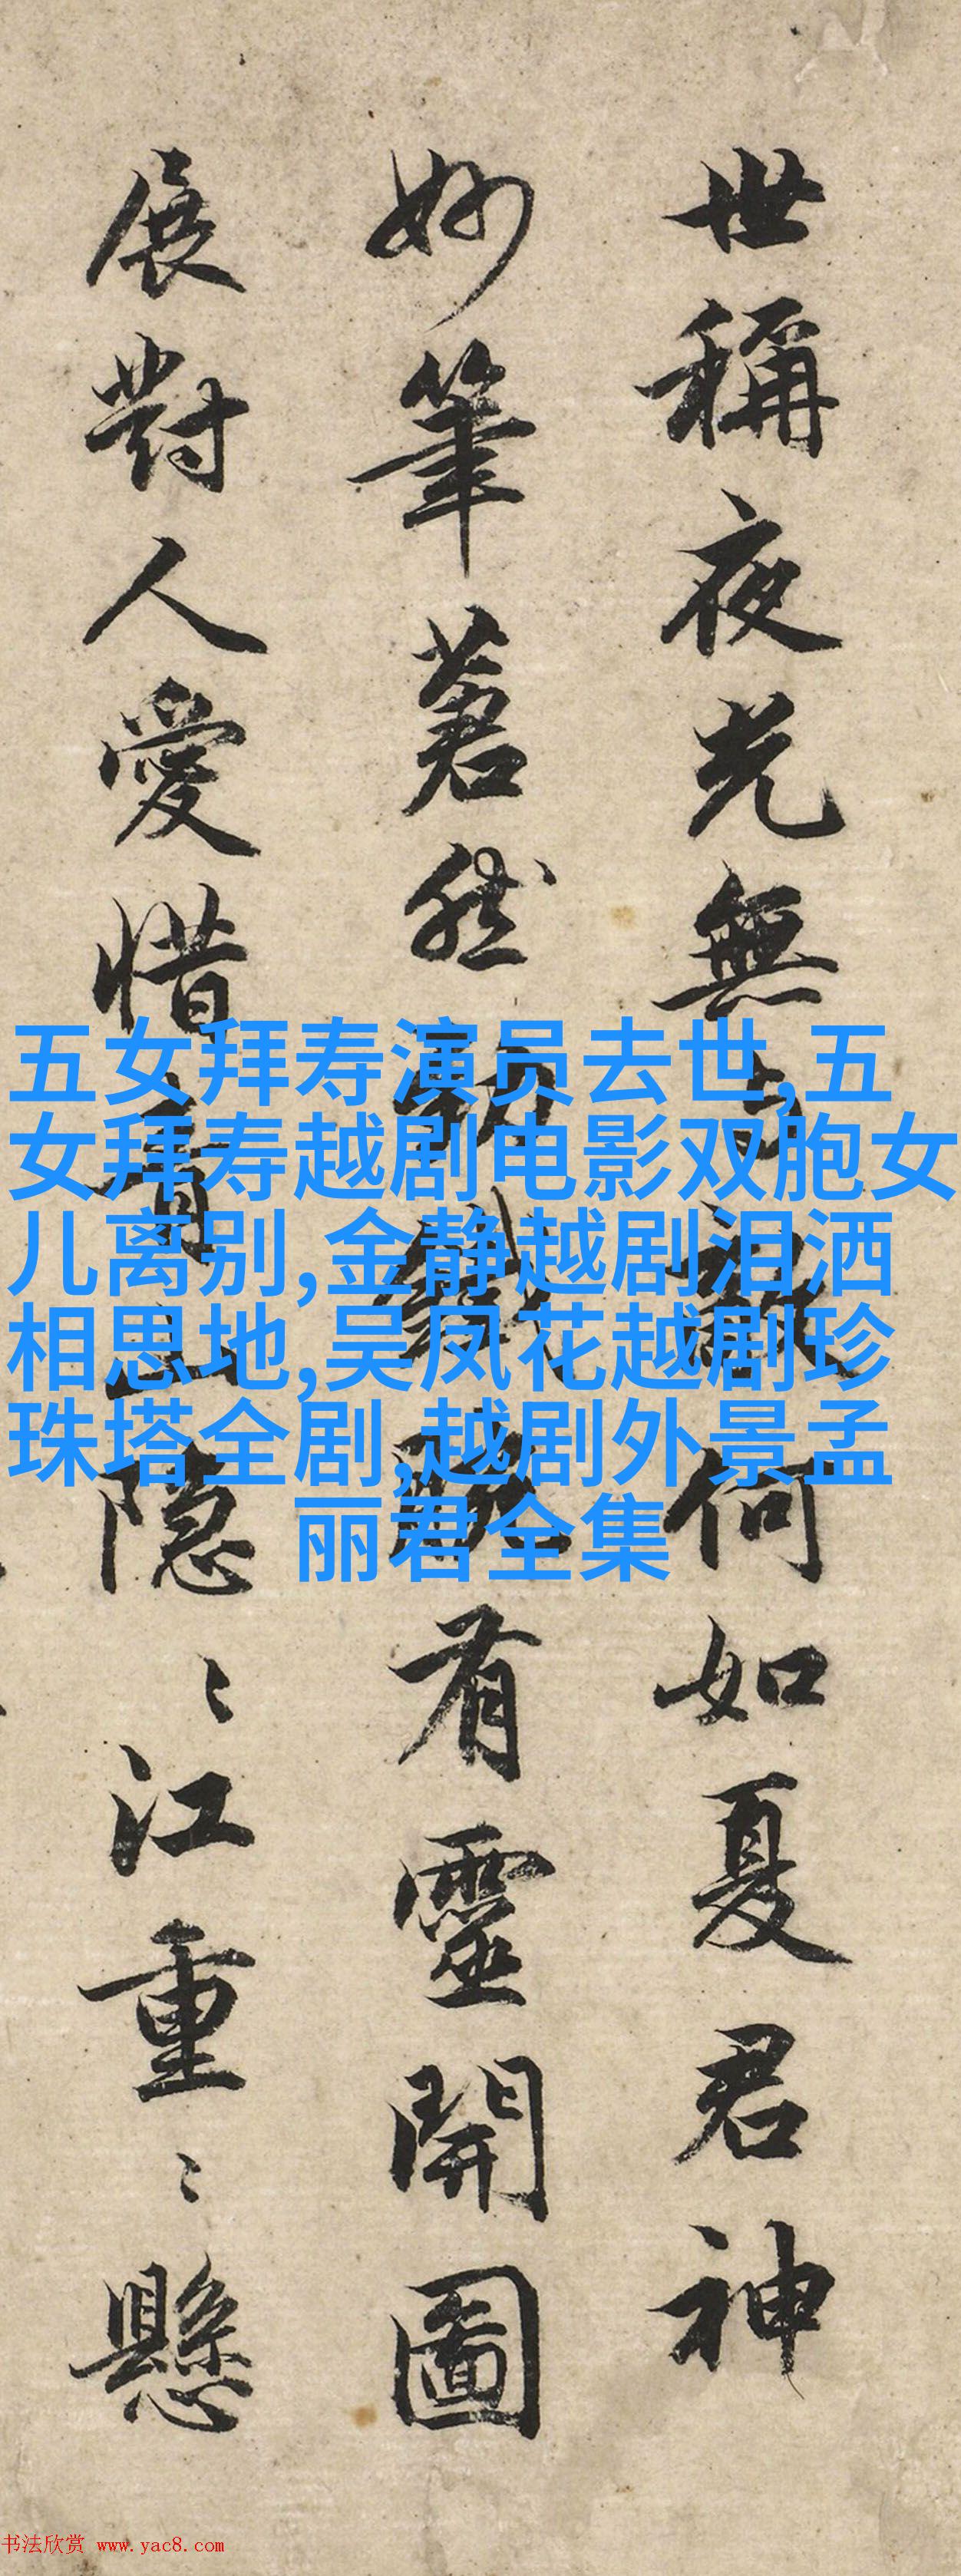 世稱夜光無與
何如夏君神
妙筆著然
有靈開圖
展對人愛惜
隱〻江重〻懸
五女拜寿演员去世,五
女拜寿越剧电影双胞女
儿离别,金静越剧泪洒
相思地,吴凤花越剧珍
珠塔全剧,越剧外景孟
丽君全集
书法欣赏 www.yac8.com